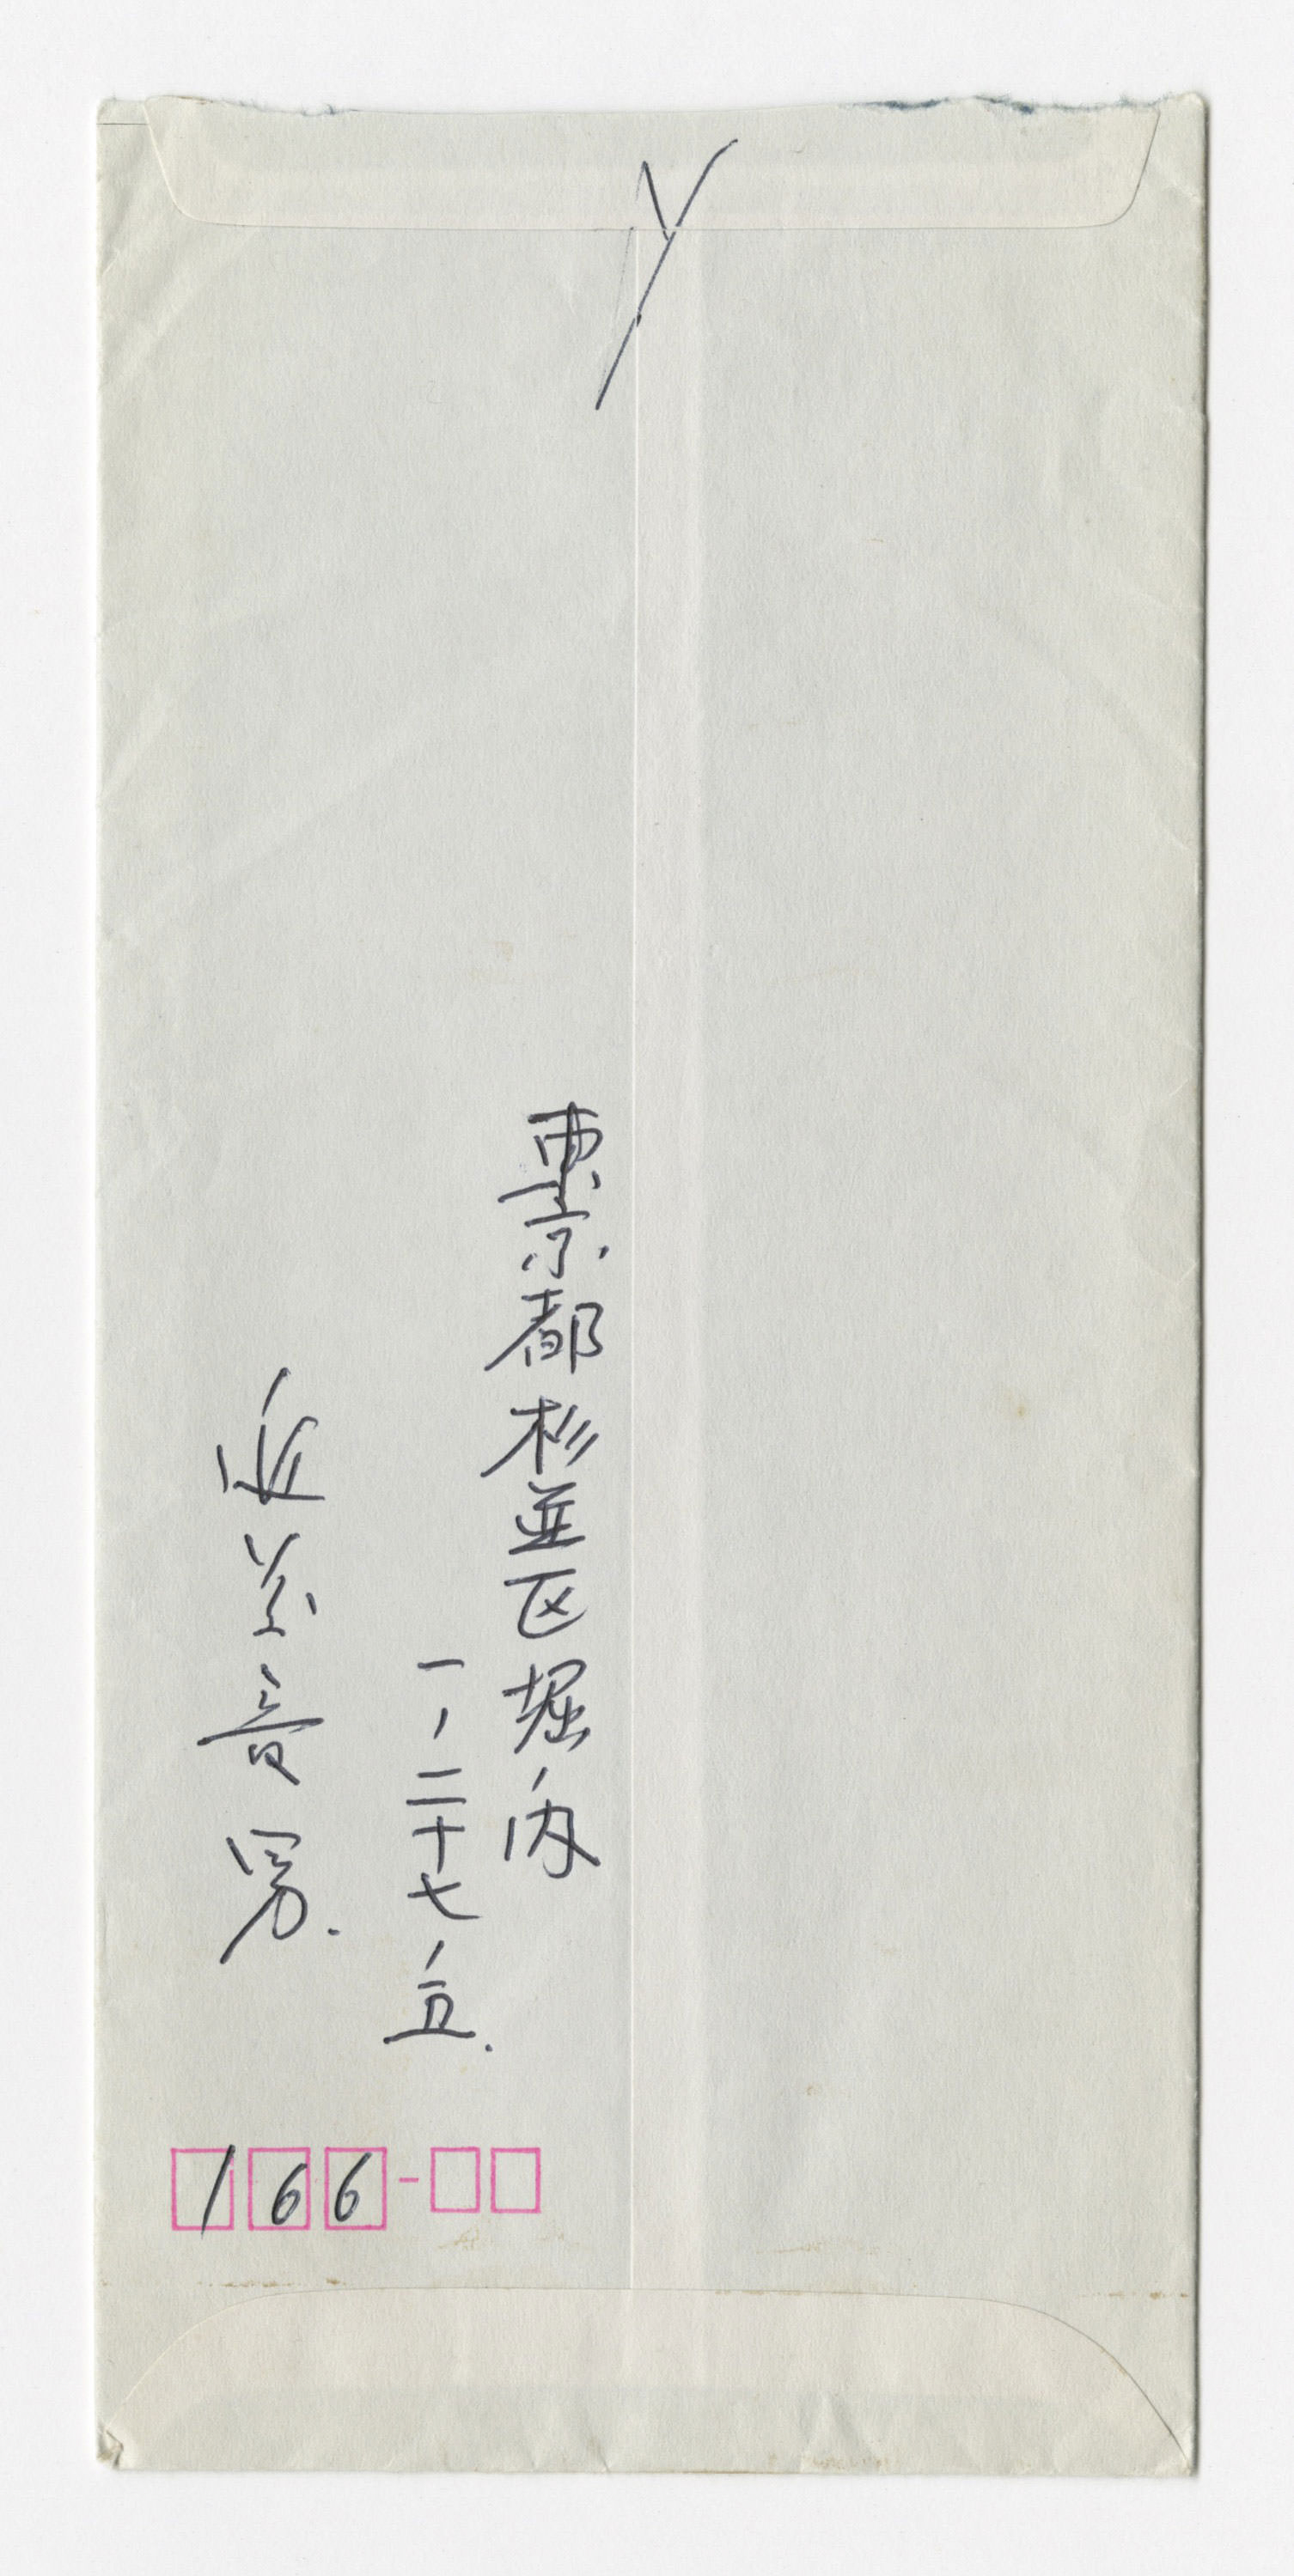 〆
東京都杉並区堀ノ内
一ノ二十七ノ五.
近藤音男.
166-